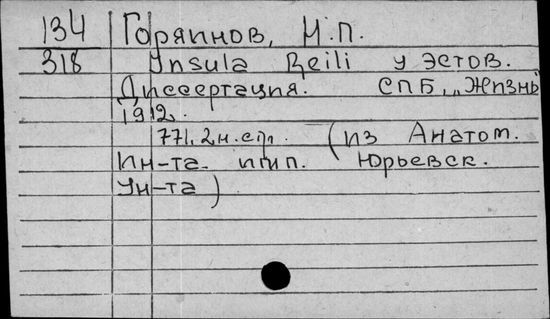 134 Горяинов, М.П.
318 Insula Reili у эстов.
Диссертация. СПБ, „Жизнь"
1912.
771, 2н.стр. (из Анатом.
Ин-та имп. Юрьевск.
Ун-та)